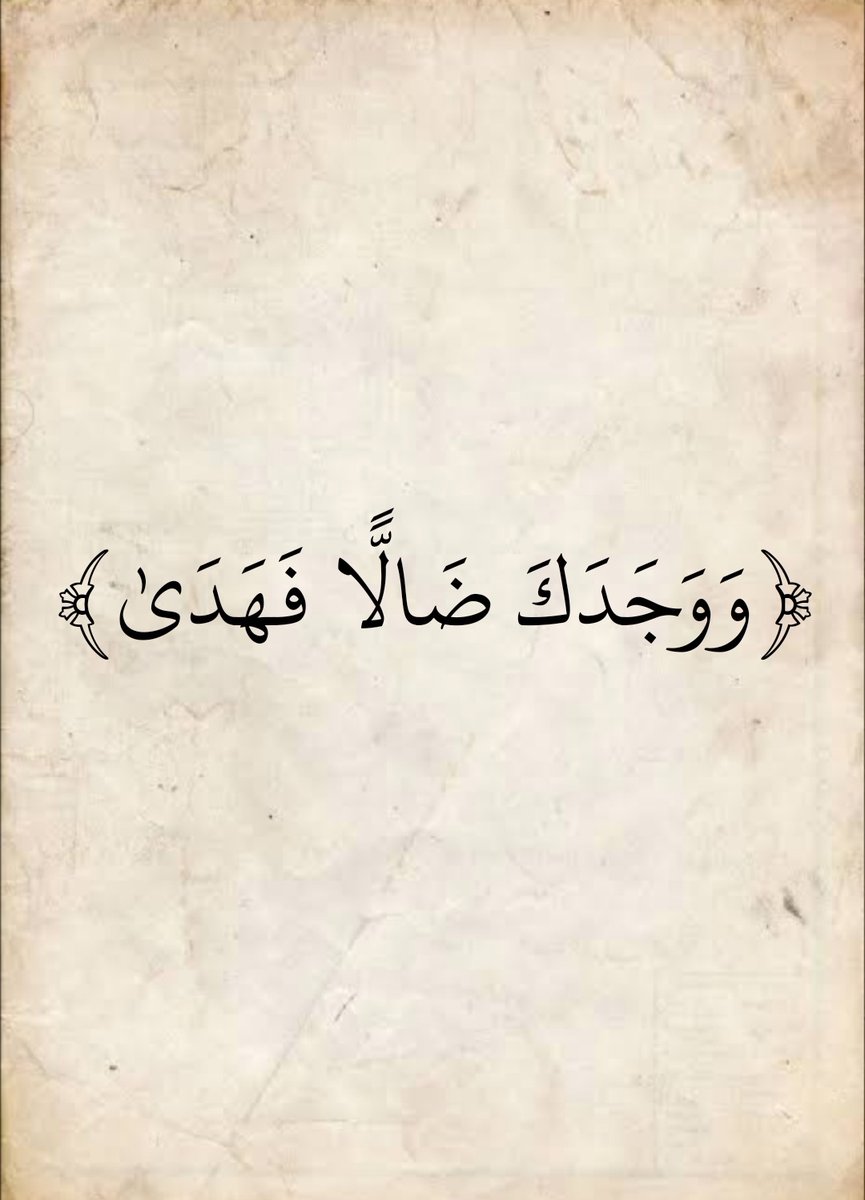 ﴿وَوَجَدَكَ ضَالًّا فَهَدَىٰ﴾